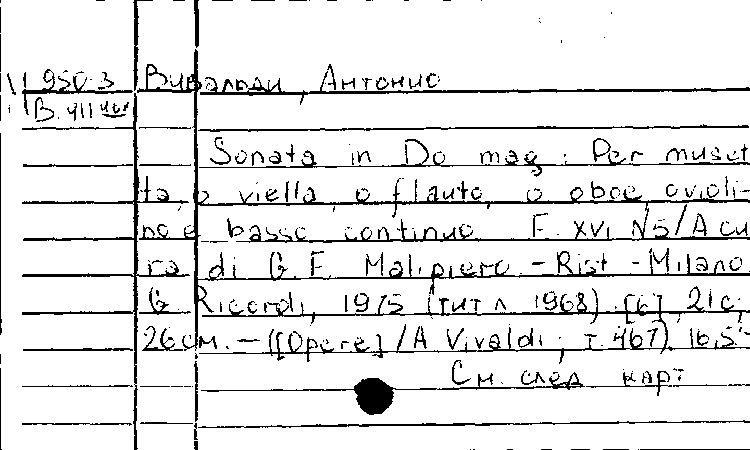 950-3 Вивальди, Антонио
В. 411
Sonata in Do mag: Per muset
ta, o viella, o flauto, o oboe, o violi-
no e basso continuo F. XVI N5/A cu
ra di G. F. Malipiero. - Rist - Milano
G Ricordi, 1975 (тит л 1968). [6], 21 с,
26 см. - ([Opere] / A Vivaldi; т. 467). 16,5
См. след карт